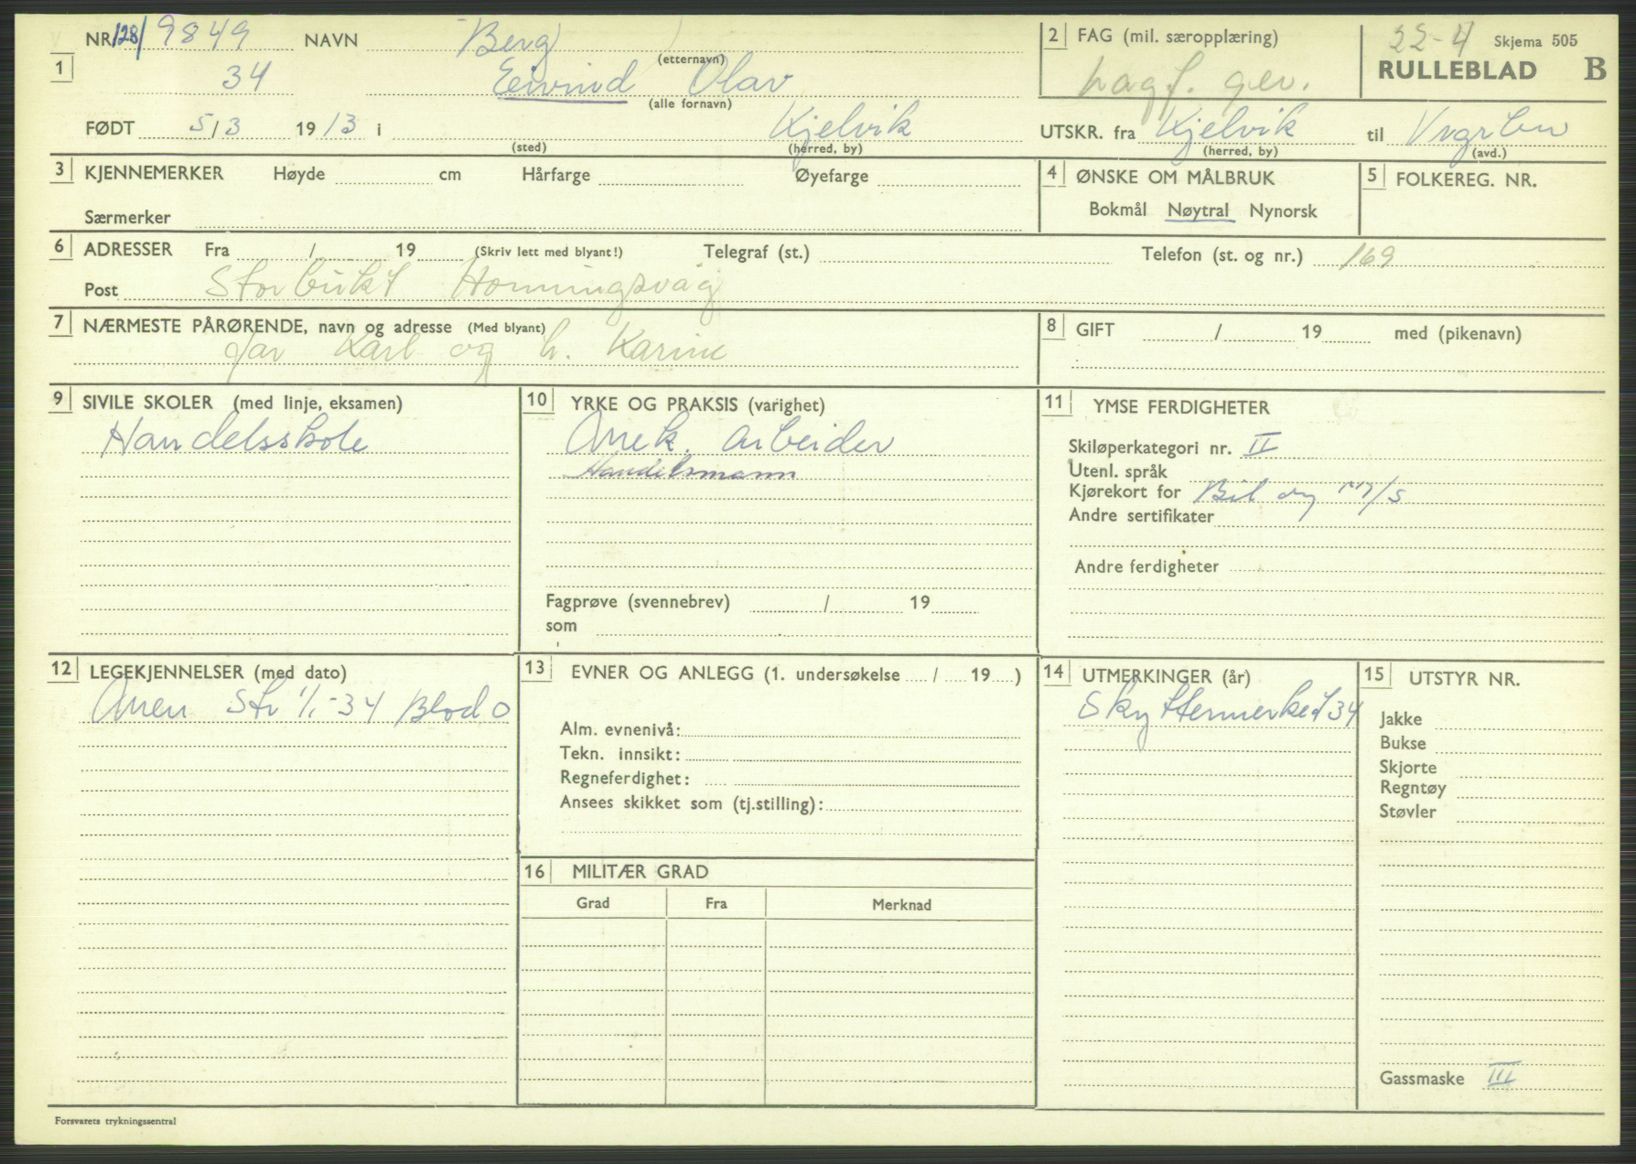 NR 128/ 9849 NAVN Berg (etternavn)
1 34 Eivind Olav (alle fornavn)
FØDT 5/3 1913 i Kjelvik
(sted) (herred, by)
2 FAG (mil. særopplæring)
Lagf. gev.
22-4 Skjema 505
RULLEBLAD B
UTSKR. fra Kjelvik til
(herred, by) (avd.)
3 KJENNEMERKER Høyde cm Hårfarge Øyefarge
Særmerker
4 ØNSKE OM MÅLBRUK
Bokmål Nøytral Nynorsk
5 FOLKEREG. NR.
6 ADRESSER Fra / 19 (Skriv lett med blyant!) Telegraf (st.) Telefon (st. og nr.) 169
Post Storbukt Honningsvåg
7 NÆRMESTE PÅRØRENDE, navn og adresse (Med blyant)
far Karl og h. Karine
8 GIFT / 19 med (pikenavn)
9 SIVILE SKOLER (med linje, eksamen)
Handelsskole
10 YRKE OG PRAKSIS (varighet)
Mek. arbeider
Handelsmann
Fagprøve (svennebrev) / 19
som
11 YMSE FERDIGHETER
Skiløperkategori nr. II
Utenl. språk
Kjørekort for Bil og m/s
Andre sertifikater
Andre ferdigheter
12 LEGEKJENNELSER (med dato)
Str 1/1-34 Blod O
13 EVNER OG ANLEGG (1. undersøkelse / 19 )
Alm. evnenivå:
Tekn. innsikt:
Regneferdighet:
Ansees skikket som (tj.stilling):
14 UTMERKINGER (år)
Skyttermerket 34
15 UTSTYR NR.
Jakke
Bukse
Skjorte
Regntøy
Støvler
Gassmaske III
16 MILITÆR GRAD
Grad Fra Merknad
Forsvarets trykningssentral